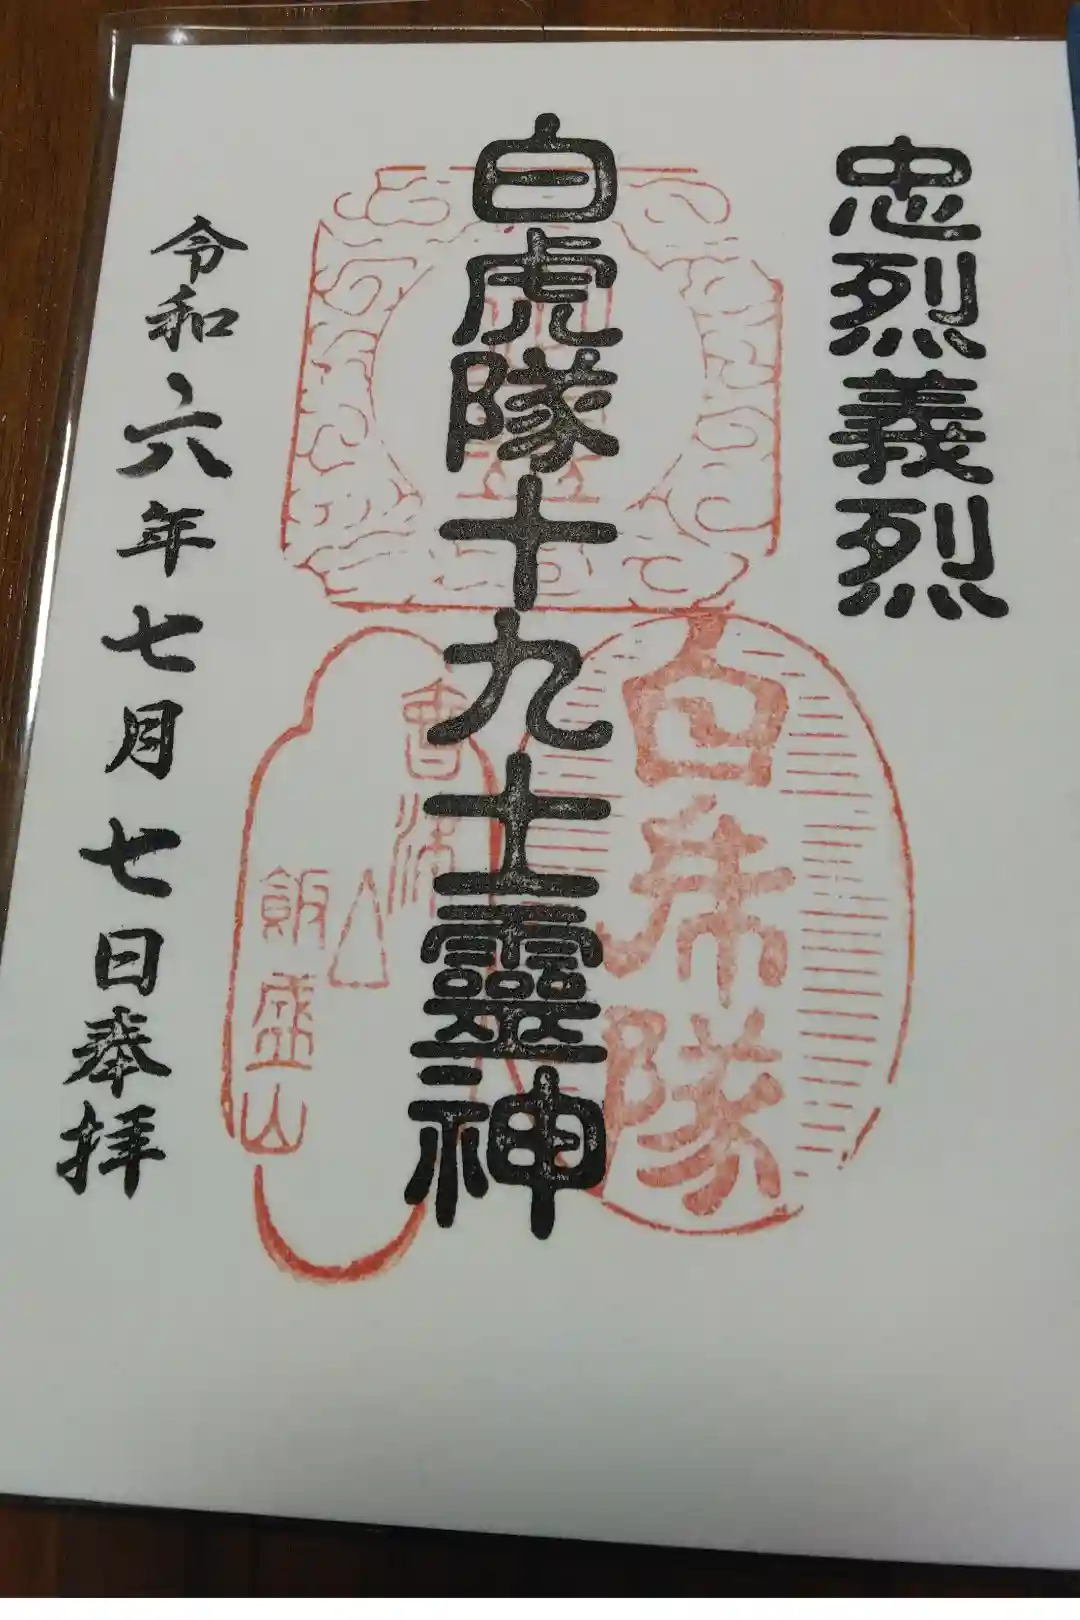 忠烈義烈
白虎隊十九士靈神
白虎隊
會津
飯盛山
令和六年七月七日奉拝